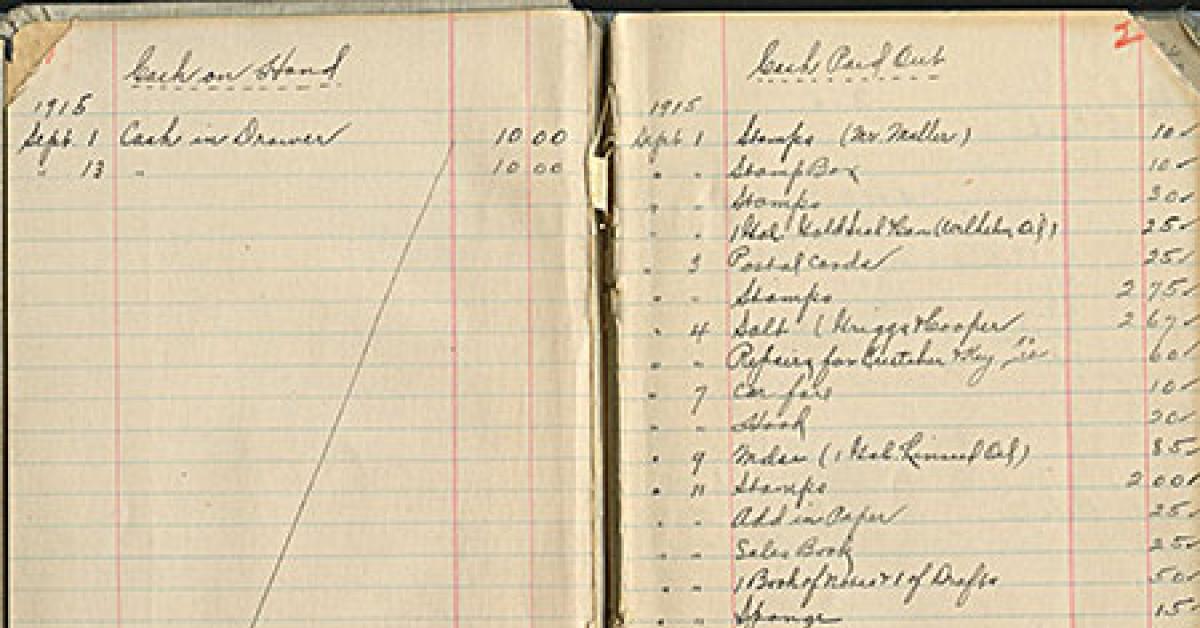 Cash on Hand
1915
Sept. 1 Cash in Drawer 10 00
" 13 " 10 00
2
Cash Paid Out
1915
Sept 1 Stamps (Mr. Moller) 10
" " Stamp Box 10
" " Stamps 30
1 Gal. Can 25
" 3 Postal Cards 25
" " Stamps 2 75
" 4 Salt (Griggs & Cooper 2 67
" " Repairing for & Key 60
" 7 Car fare 10
" " Hook 20
" 9 Mdse (1 Gal. Linseed Oil) 85
" 11 Stamps 2 00
" " Add in Paper 25
" " Sales Book 25
" " 1 Book of Notes & 1 of Drafts 50
" " Sponge 15